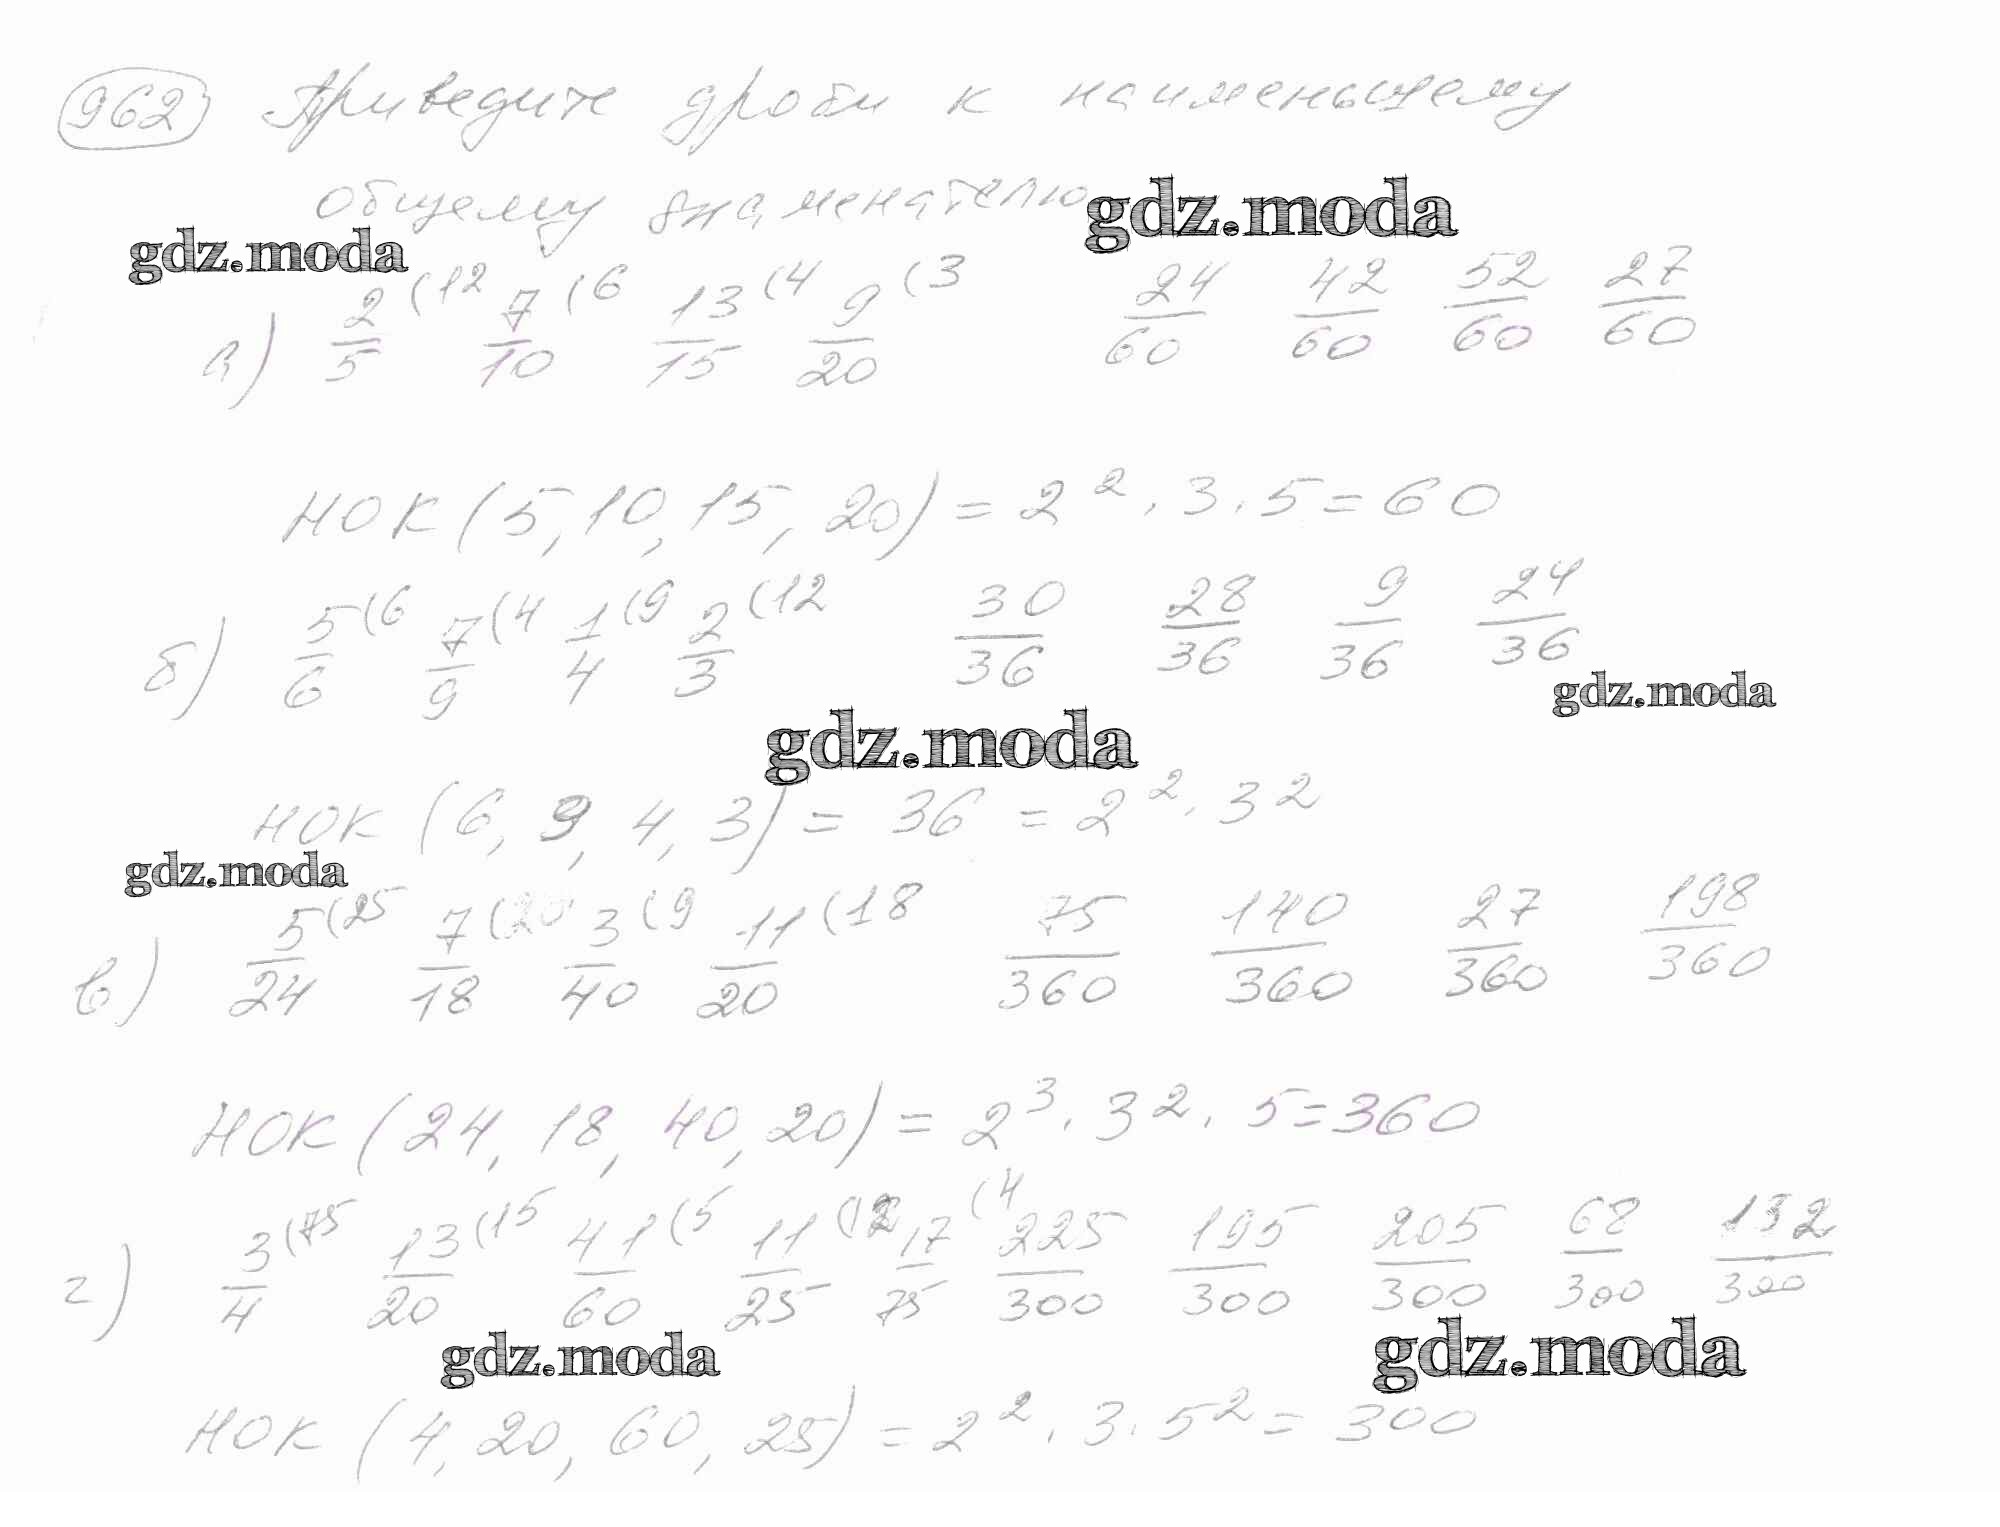 962 Приведите дроби к наименьшему
общему знаменателю
gdz.moda
gdz.moda
а) 2/5 (12 7/10 (6 13/15 (4 9/20 (3 24/60 42/60 52/60 27/60
НОК (5, 10, 15, 20) = 2² · 3 · 5 = 60
б) 5/6 (6 7/9 (4 1/4 (9 2/3 (12 30/36 28/36 9/36 24/36
gdz.moda
gdz.moda
НОК (6, 9, 4, 3) = 36 = 2² · 3²
gdz.moda
в) 5/24 (25 7/18 (20 3/40 (9 11/20 (18 75/360 140/360 27/360 198/360
НОК (24, 18, 40, 20) = 2³ · 3² · 5 = 360
г) 3/4 (75 13/20 (15 41/60 (5 11/25 (12 17/75 (4 225/300 195/300 205/300 68/300 132/300
gdz.moda
gdz.moda
НОК (4, 20, 60, 25) = 2² · 3 · 5² = 300